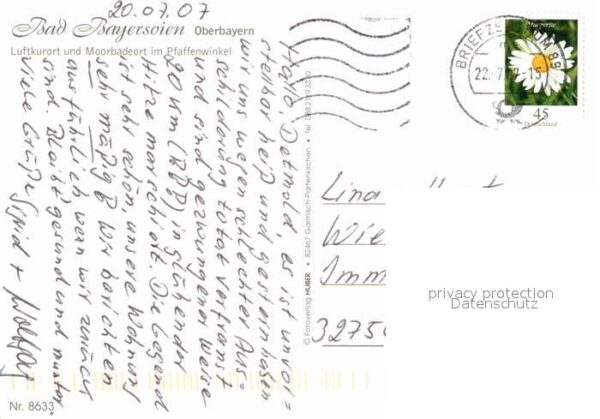 20.07.07
Bad Bayersoien Oberbayern
Luftkurort und Moorbadeort im Pfaffenwinkel
Hallo Detmold, es ist unvor=
stellbar heiß und gestern haben
wir uns wegen schlechter Aus=
schilderung total verfranst
und sind gezwungener weise
20 km (!) in glühender
Hitze marschiert. Die Gegend
ist sehr schön, unsere Wohnung
sehr mäßig. Wir berichten
ausführlich wenn wir zurück
sind. Bleibt gesund und munter
Viele Grüße Sigrid + Wolfgang
© Fotoverlag HUBER • 82467 Garmisch-Partenkirchen • Tel.
BRIEFZENTRUM 89
22.7.07-15
Margerite
45
Deutschland
Lina
Wie
Imm
3275
privacy protection
Datenschutz
Nr. 8633